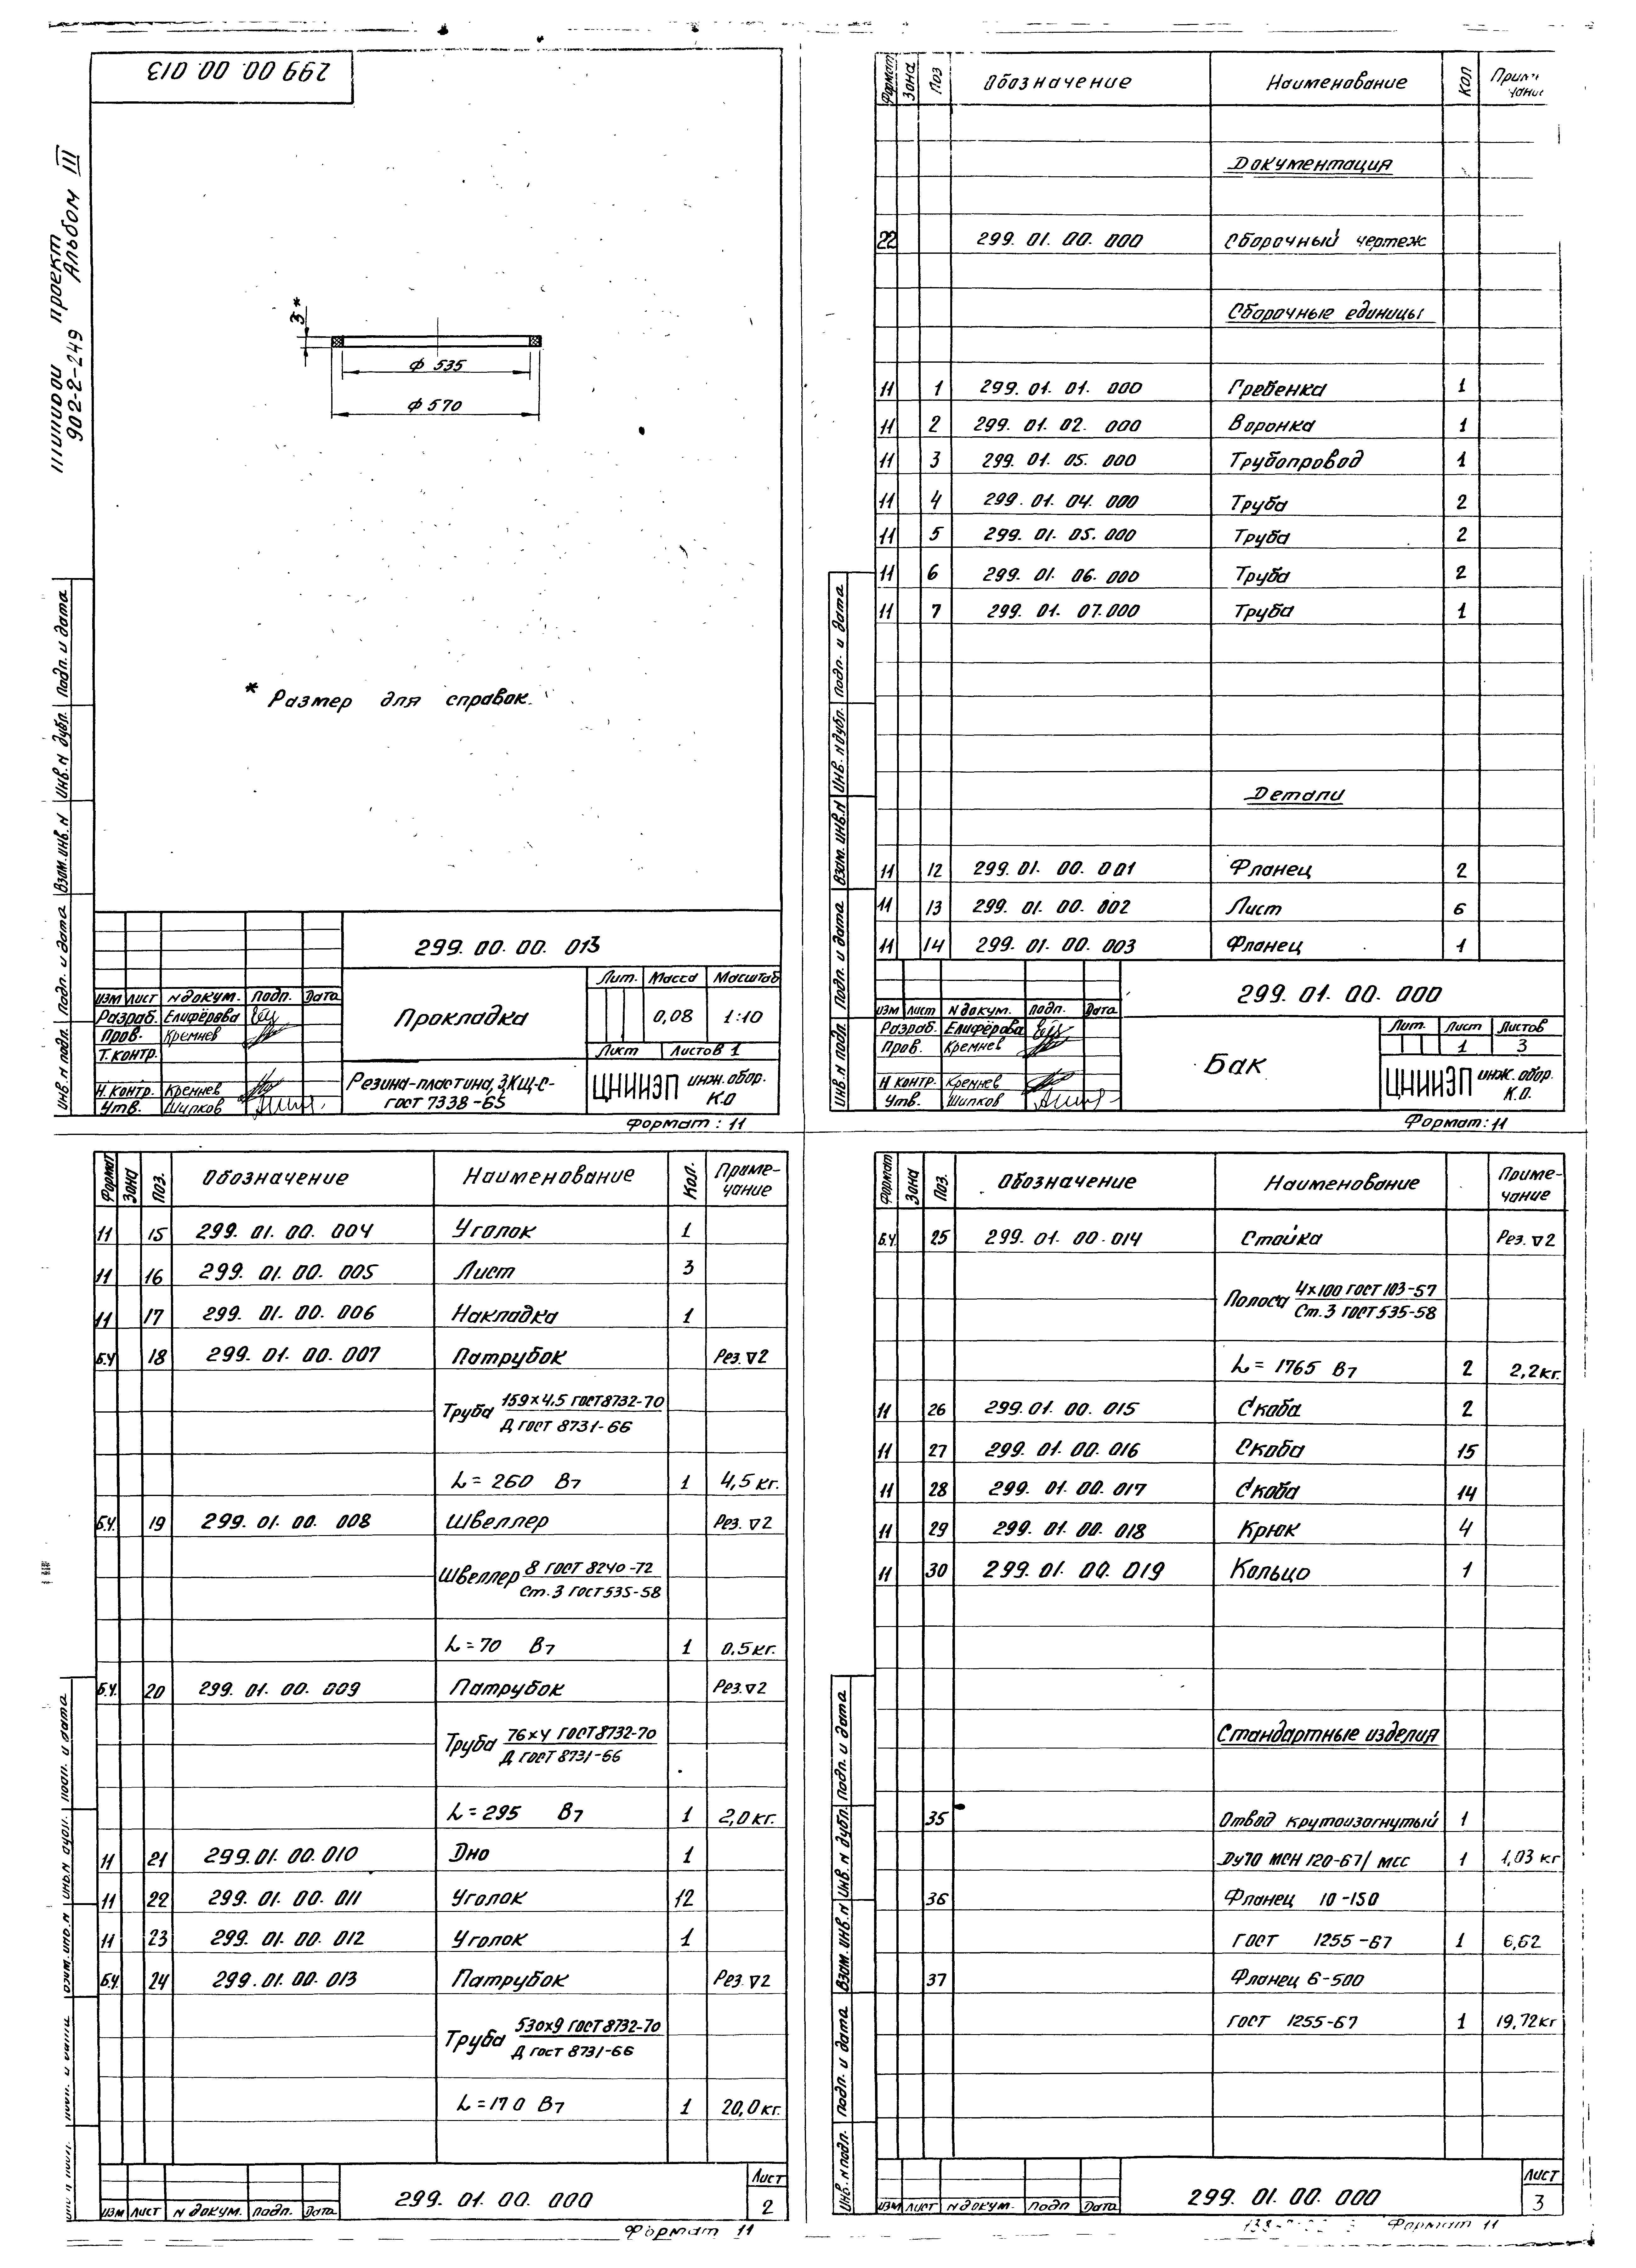 299 00. 00. 013
проект
902-2-249 Альбом III
3*
ф 535
ф 570
* Размер для справок.
Инв.N подл. Подп. и дата Взам.инв.N Инв.N дубл. Подп. и дата
299. 00. 00. 013
Изм Лист N докум. Подп. Дата
Разраб. Елиферова
Пров. Кремнев
Т. контр.
Н. контр. Кремнев
Утв. Шипков
Прокладка
Лит. Масса Масштаб
0,08 1:10
Лист Листов 1
Резина-пластина, 3КЩ-С-
ГОСТ 7338-65
ЦНИИЭП инж. обор.
К.О
Формат: 11
Формат Зона Поз Обозначение Наименование Кол
Документация
22 299. 01. 00. 000 Сборочный чертеж
Сборочные единицы
11 1 299. 01. 01. 000 Гребенка 1
11 2 299. 01. 02. 000 Воронка 1
11 3 299. 01. 05. 000 Трубопровод 1
11 4 299. 01. 04. 000 Труба 2
11 5 299. 01. 05. 000 Труба 2
11 6 299. 01. 06. 000 Труба 2
11 7 299. 01. 07. 000 Труба 1
Детали
11 12 299. 01. 00. 001 Фланец 2
11 13 299. 01. 00. 002 Лист 6
11 14 299. 01. 00. 003 Фланец 1
Инв.N подл. Подп. и дата Взам. инв.N Инв. N дубл. Подп. и дата
299. 01. 00. 000
Изм Лист N докум. Подп. Дата
Разраб. Елиферова
Пров. Кремнев
Н контр. Кремнев
Утв. Шипков
Бак
Лит. Лист Листов
1 3
ЦНИИЭП инж. обор.
К.О.
Формат: 11
Формат Зона Поз. Обозначение Наименование Кол. Приме-
чание
11 15 299. 01. 00. 004 Уголок 1
11 16 299. 01. 00. 005 Лист 3
11 17 299. 01. 00. 006 Накладка 1
Б.Ч 18 299. 01. 00. 007 Патрубок Рез. ▽2
Труба 159х4.5 ГОСТ 8732-70
Д ГОСТ 8731-66
L= 260 В7 1 4,5 кг.
Б.Ч. 19 299. 01. 00. 008 Швеллер Рез. ▽2
Швеллер 8 ГОСТ 8240-72
Ст. 3 ГОСТ 535-58
L= 70 В7 1 0.5 кг.
Б.Ч. 20 299. 01. 00. 009 Патрубок Рез. ▽2
Труба 76х4 ГОСТ 8732-70
Д ГОСТ 8731-66
L= 295 В7 1 2,0 кг.
11 21 299. 01. 00. 010 Дно 1
11 22 299. 01. 00. 011 Уголок 12
11 23 299. 01. 00. 012 Уголок 1
Б.Ч. 24 299. 01. 00. 013 Патрубок Рез. ▽2
Труба 530х9 ГОСТ 8732-70
Д ГОСТ 8731-66
L= 170 В7 1 20,0 кг.
Изм Лист N докум. Подп. Дата
299. 01. 00. 000
Лист
2
Формат 11
Формат Зона Поз. Обозначение Наименование Приме-
чание
Б.Ч 25 299. 01. 00. 014 Стойка Рез. ▽2
Полоса 4х100 ГОСТ 103-57
Ст. 3 ГОСТ 535-58
L= 1765 В7 2 2,2 кг.
11 26 299. 01. 00. 015 Скоба 2
11 27 299. 01. 00. 016 Скоба 15
11 28 299. 01. 00. 017 Скоба 14
11 29 299. 01. 00. 018 Крюк 4
11 30 299. 01. 00. 019 Кольцо 1
Стандартные изделия
35 Отвод крутоизогнутый 1
Ду70 МСН 120-67/ мсс 1 1,03 кг
36 Фланец 10-150
ГОСТ 1255-67 1 6,62
37 Фланец 6-500
ГОСТ 1255-67 1 19,72 кг
Инв. N подл. Подп. и дата Взам. инв. N Инв. N дубл. Подп. и дата
Изм Лист N докум. Подп Дата
299. 01. 00. 000
Лист
3
Формат 11